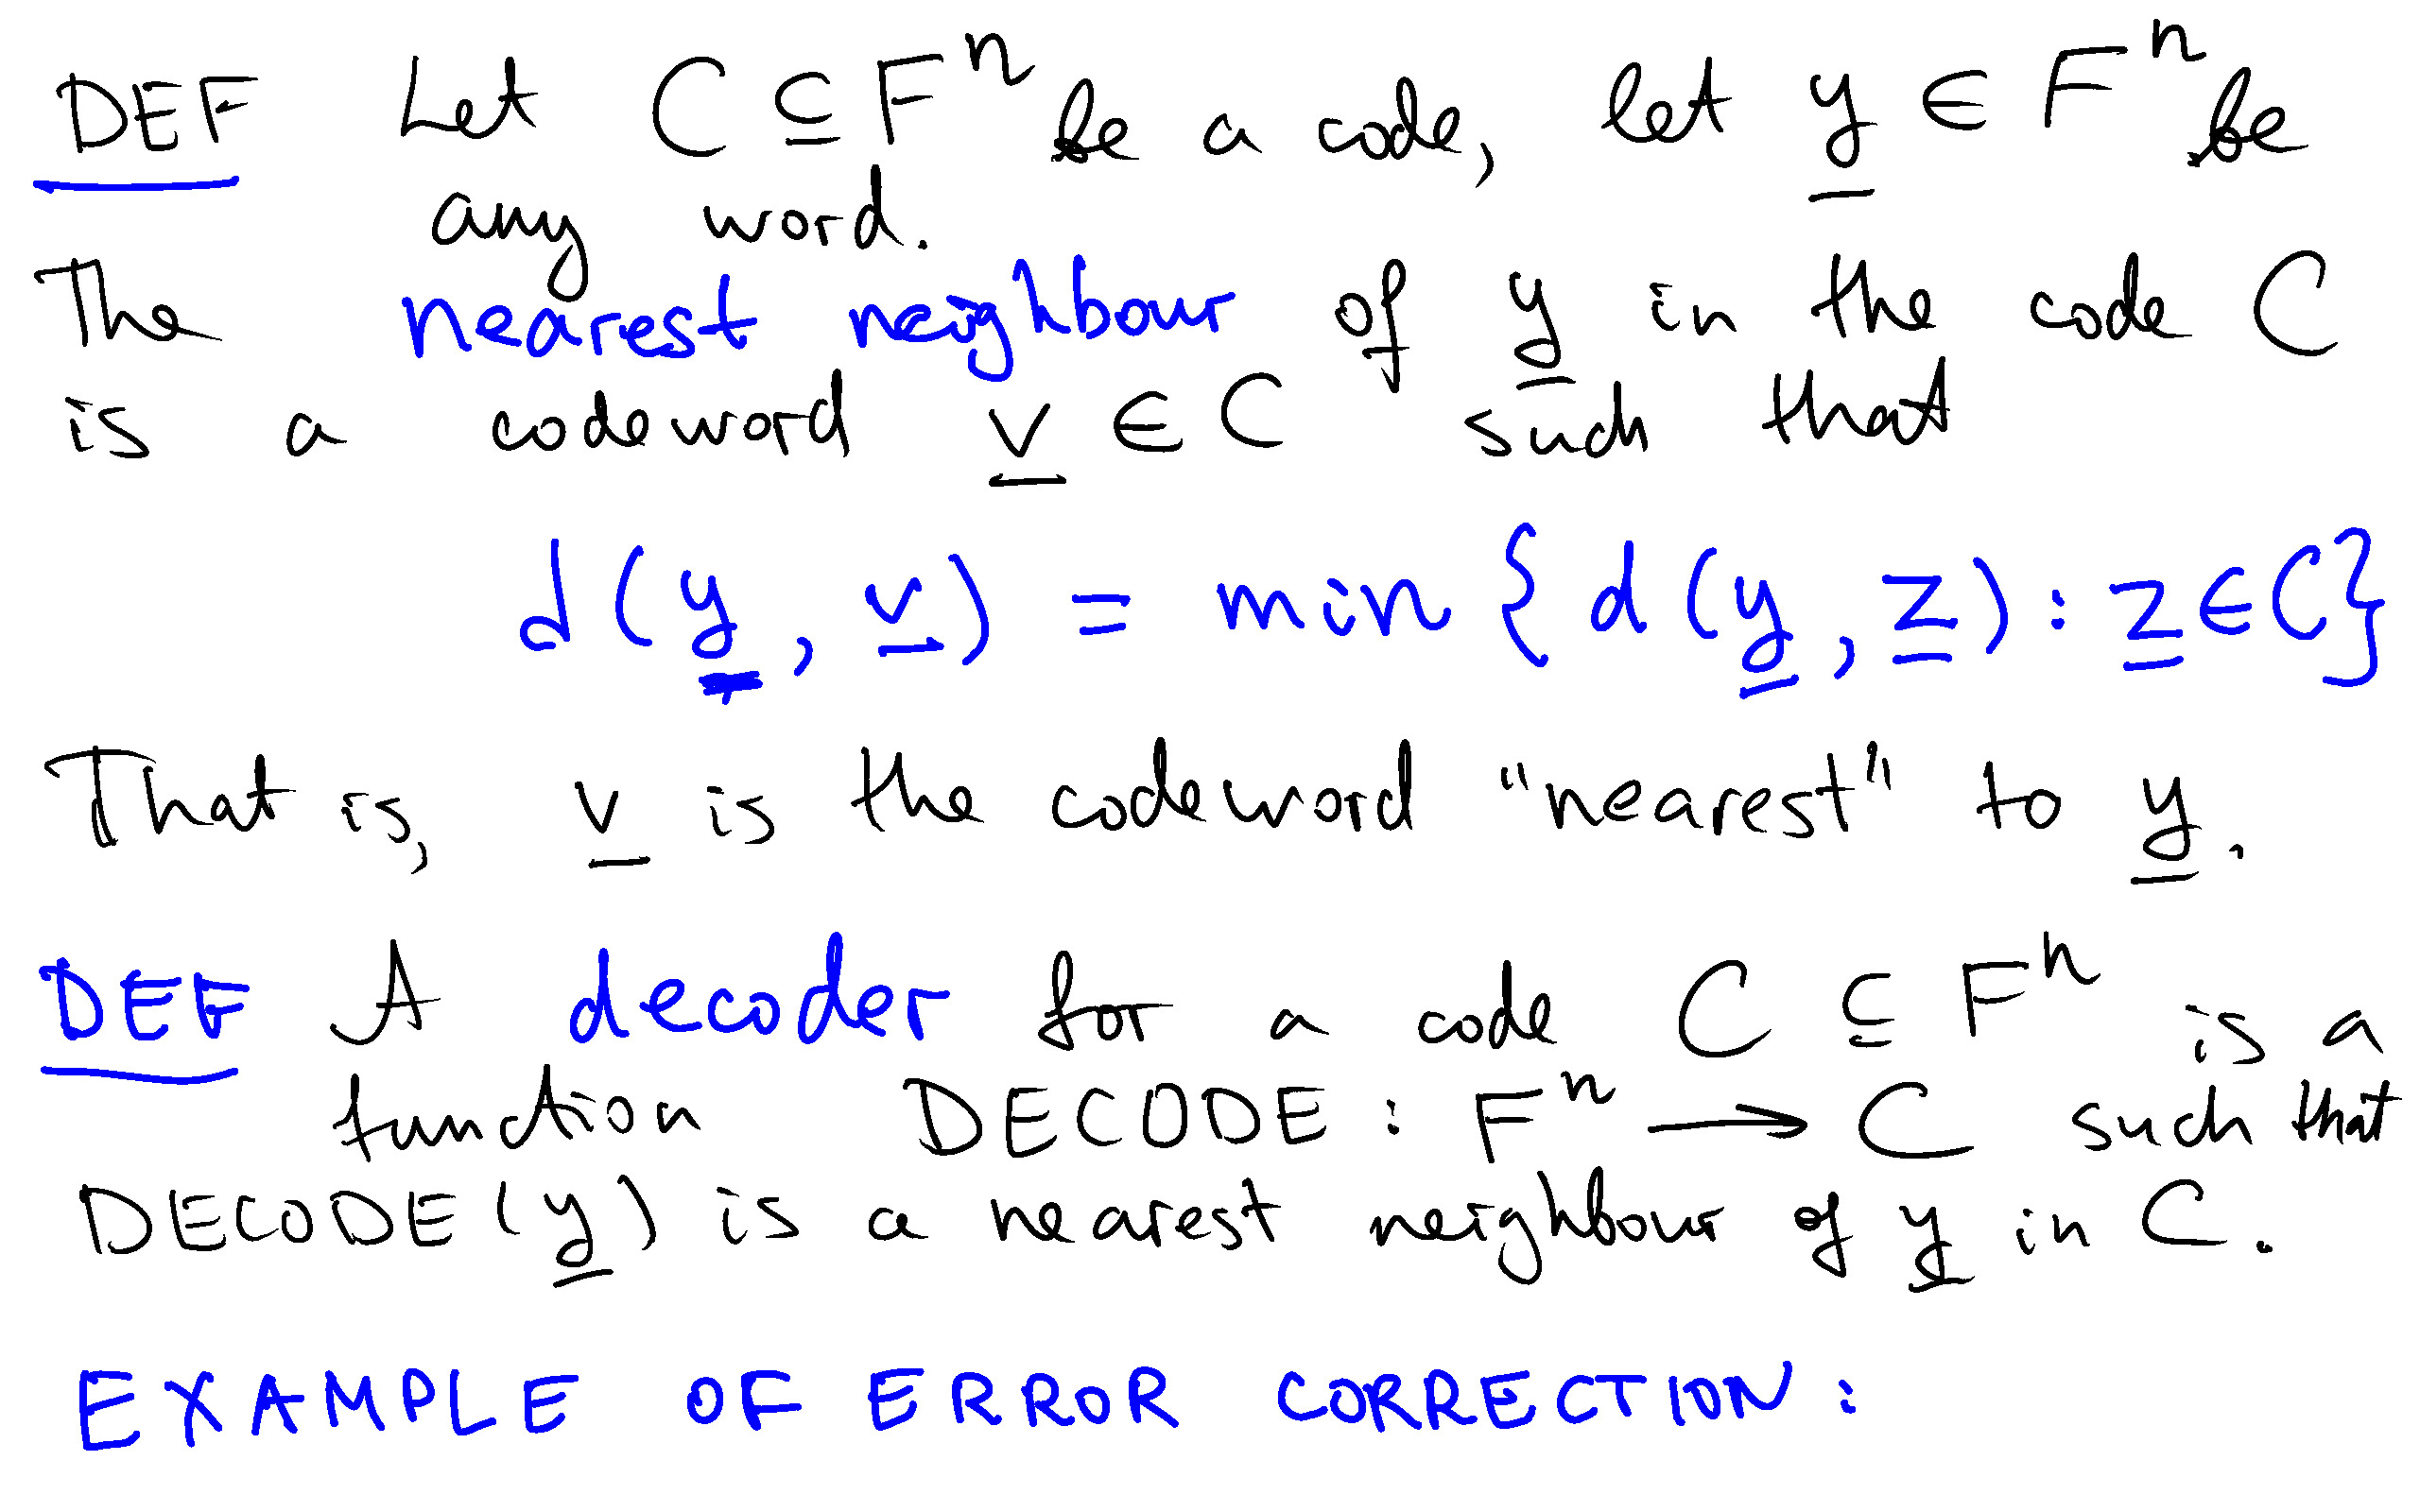 DEF Let C ⊆ Fⁿ be a code, let y ∈ Fⁿ be
any word.
The nearest neighbour of y in the code C
is a codeword v ∈ C such that
d(y, v) = min { d(y, z) : z ∈ C}
That is, v is the codeword "nearest" to y.
DEF A decoder for a code C ⊆ Fⁿ is a
function DECODE : Fⁿ → C such that
DECODE(y) is a nearest neighbour of y in C.
EXAMPLE OF ERROR CORRECTION: